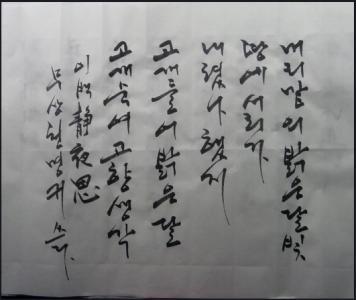 머리맡의 밝은달빛
땅에서리가
내렸나 했지
고개들어 밝은달
고개숙여 고향생각
이백 靜夜思
무상 쓰다